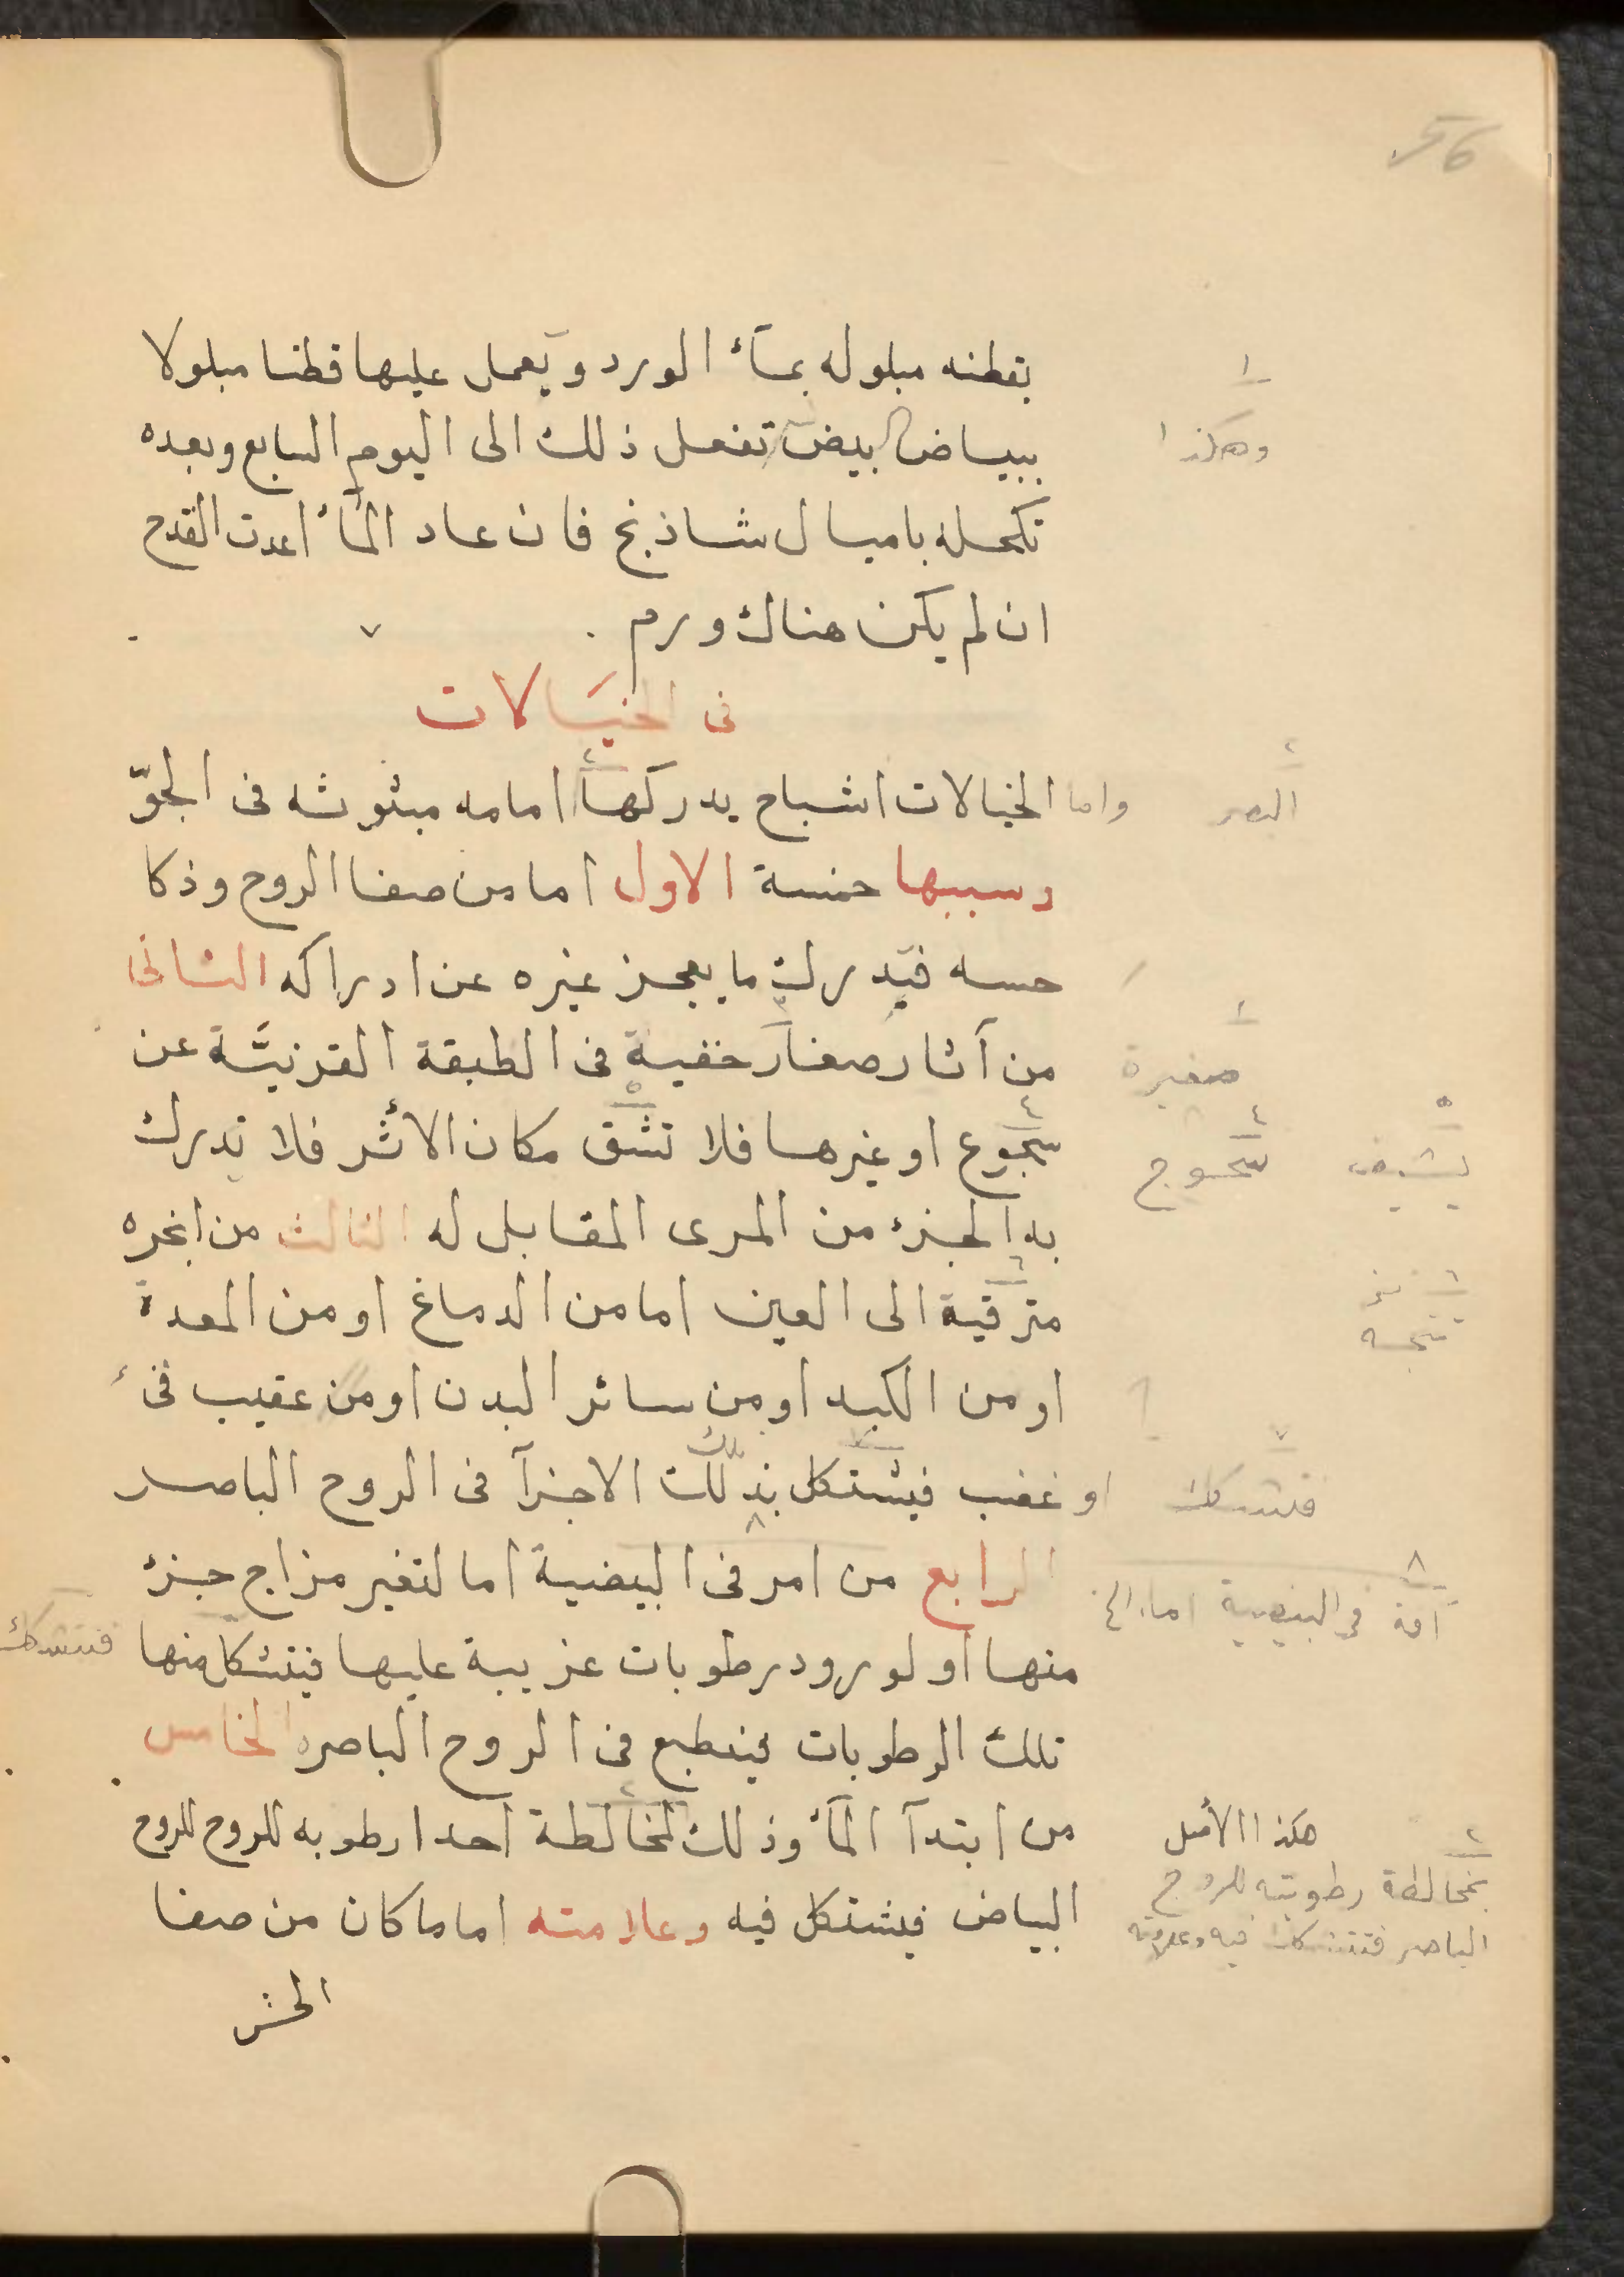 56
بقطنه مبلوله بمآء الورد ويعمل عليها قطنا مبلولا
ببياض البيض تفعل ذلك الى اليوم السابع وبعده
تكحله باميال شاذنج فان عاد المآء اعدت القدح
ان لم يكن هناك ورم
فى الخيالات
واما الخيالات اشباح يدركها امامه مبثوثه فى الجوّ
وسببها خمسة الاول اما من صفا الروح وذكا
حسه فيدرك ما يعجز غيره عن ادراكه الثانى
من آثار صغار خفية فى الطبقة القرنيّة عن
سجوع او غيرها فلا تشق مكان الأثر فلا تدرك
به الجزء من المرى المقابل له الثالث من ابخره
مترقية الى العين اما من الدماغ او من المعدة
او من الكبد او من سائر البدن او من عقيب قىء
او غضب فيشتكل بذلك الاجزآ فى الروح الباصر
الرابع من امر فى البيضية اما لتغير مزاج جزء
منها او لورود رطوبات غريبة عليها فيتشكل منها
تلك الرطوبات فينطبع فى الروح الباصره الخامس
من ابتدآ المآء وذلك لمخالطة احدا رطوبه للروح للروح
البياض فيشتكل فيه وعلامته اما ما كان من صفا
الحس
١
وهكذا
٢
البصر
صغيرة
٤
سحوج
٥
يشف
٦
٧
فتتشكل
٨
آفة في البيضية اما الخ
فتتشكل
٢
هكذا الأصل
بمخالطة رطوبته للروح
الباصر فتتشكل فيه وعلامته